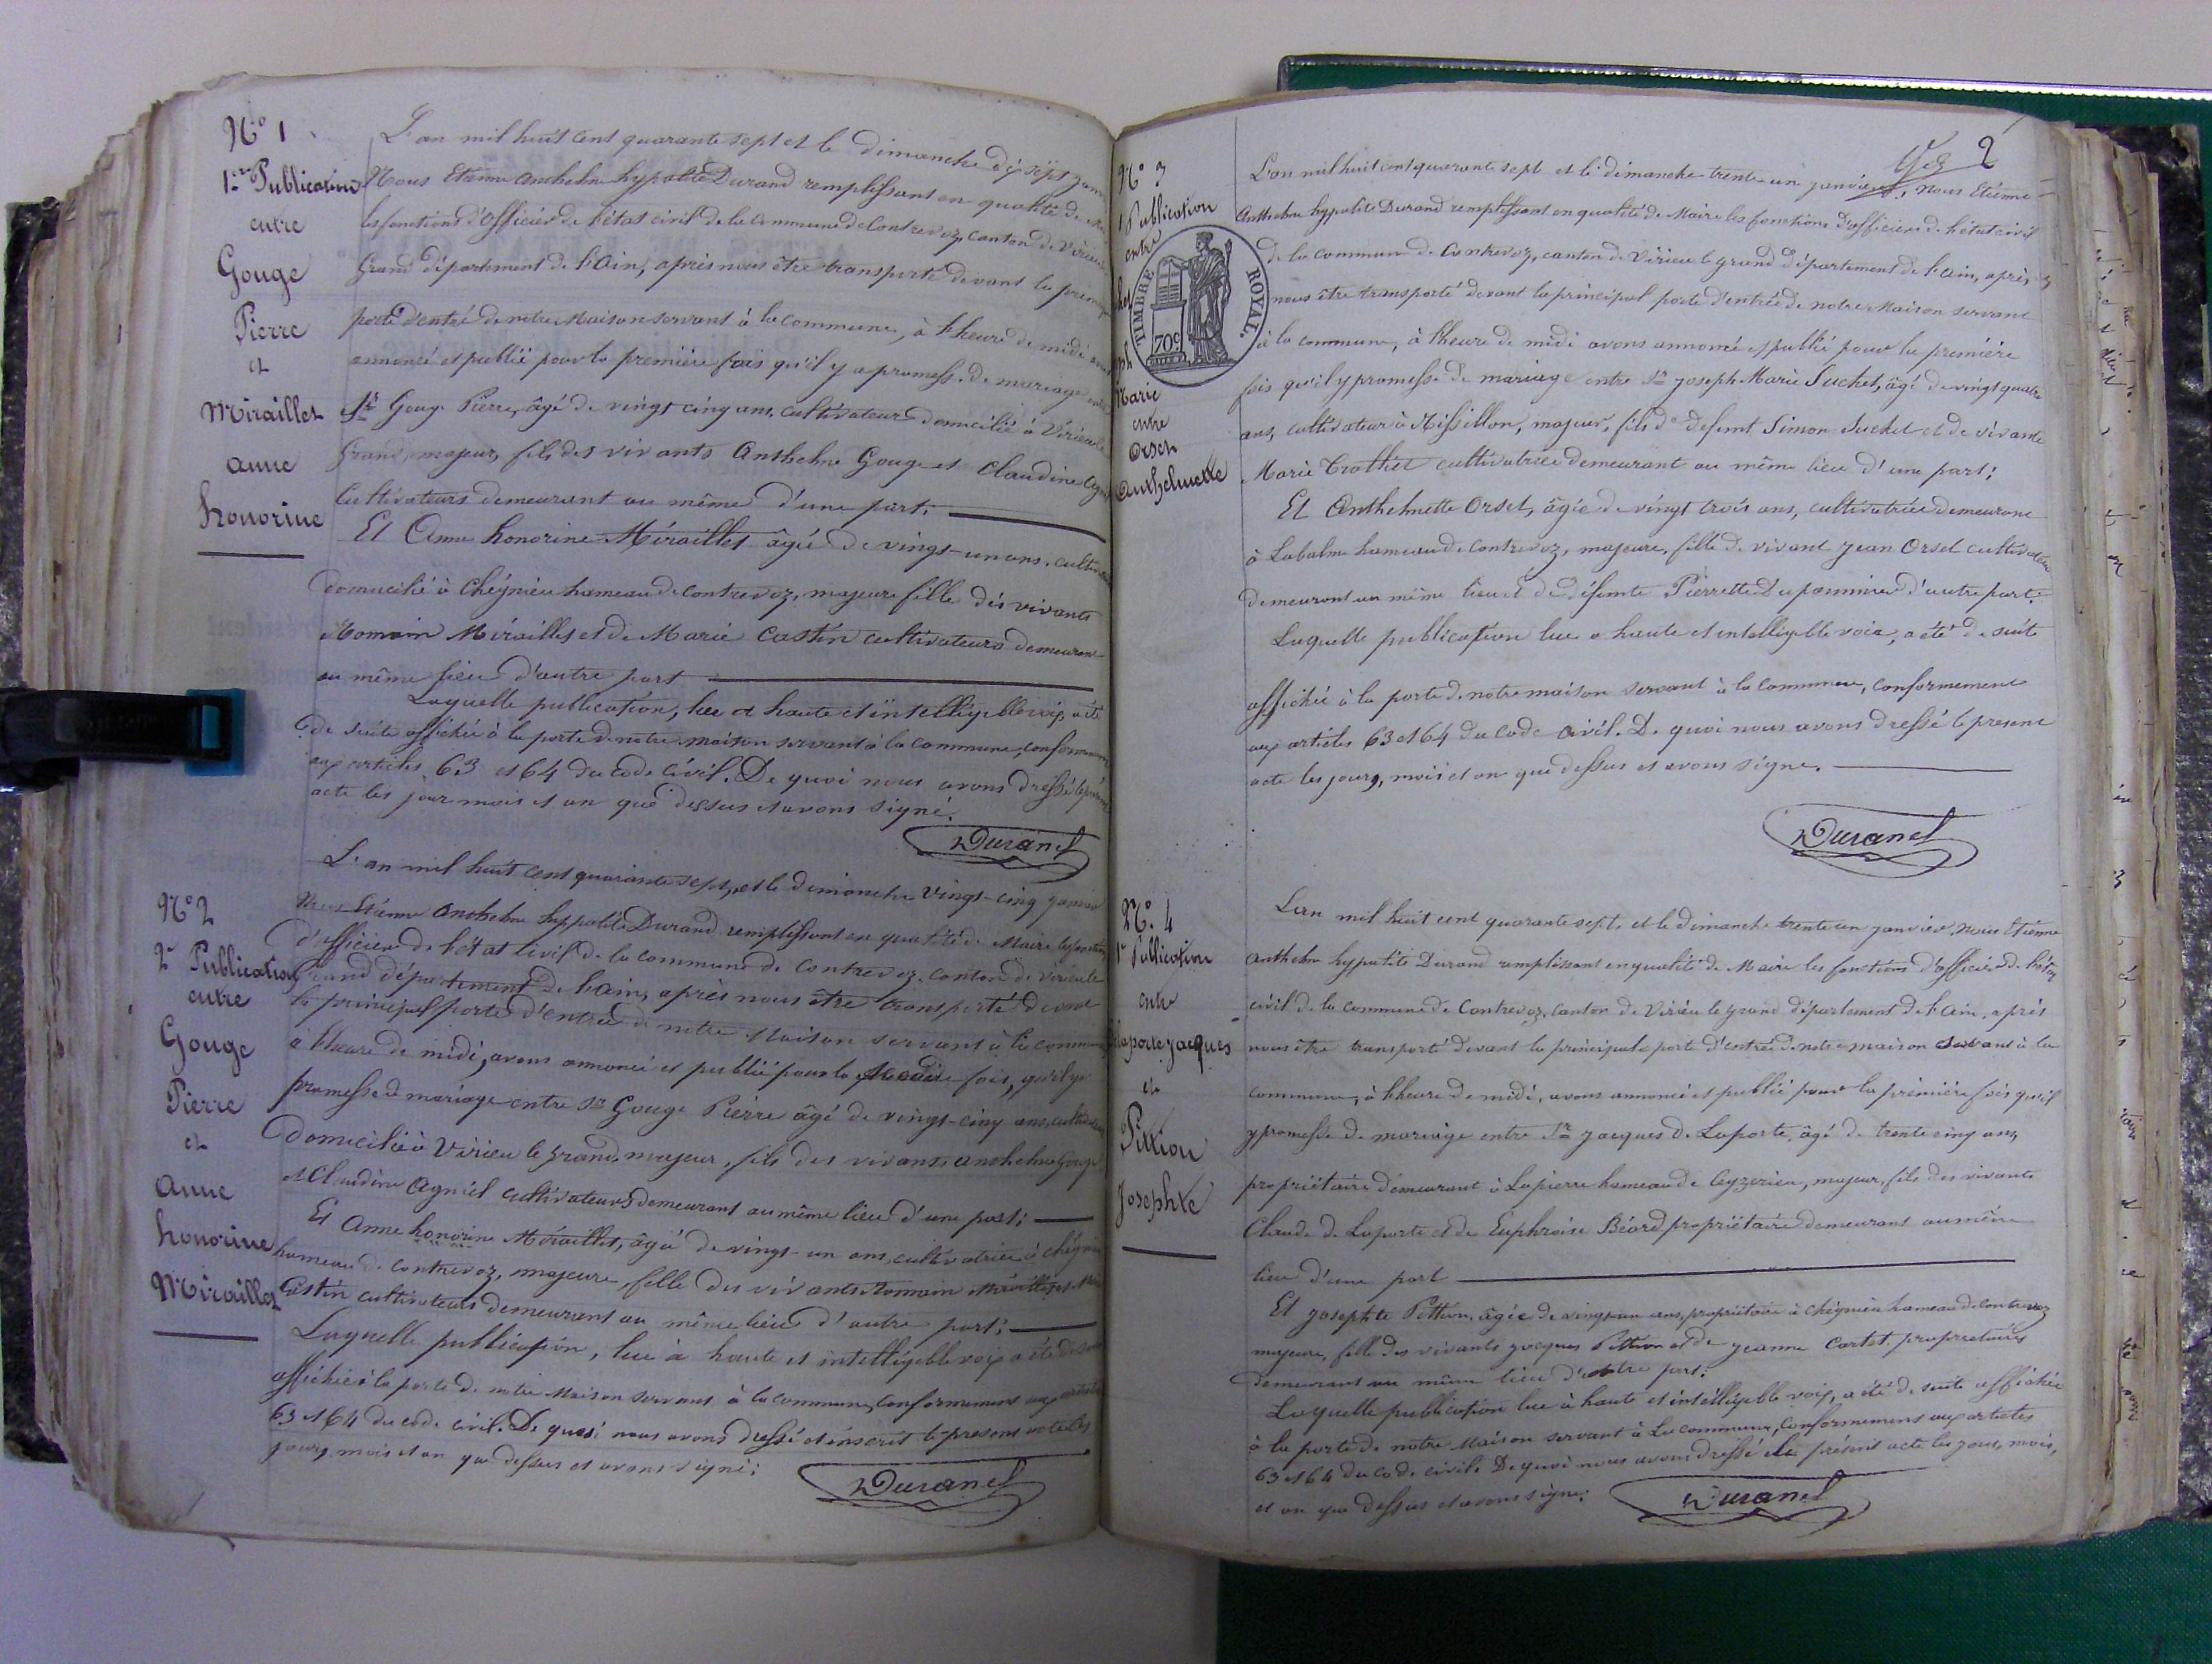 N° 1
1ère Publication
entre
Gouge
Pierre
et
Miraillet
anne
honorine
L'an mil huit cent quarante sept et le dimanche dix sept janv
Nous Etienne anthelme hypolite Durand remplissant en qualité de
les fonctions d'officier de l'état civil de la commune de Contrevoz, canton de Virieu
Grand département de l'Ain, après nous être transporté devant la
porte d'entré de notre Maison servant à la commune, à l'heure de midi
annoncé et publié pour la première fois qu'il y a promesse de mariage
Sr Gouge Pierre, âgé de vingt cinq ans cultivateur domicilié à Virieu le
Grand, majeur, fils des vivants Anthelme Gouge et Claudine
Cultivateurs demeurant au même d'une part;
Et Anne honorine Miraillet âgée de vingt-un ans, 
domicilié à Cheignieu hameau de Contrevoz, majeure fille des vivants
Romain Miraillet et de Marie Castin cultivateurs demeurant
au même lieu d'autre part
Laquelle publication, lue à haute et intelligible voix a été
de suite affichée à la porte de notre maison servant à la commune, conformement
aux articles 63 et 64 du code civil. De quoi nous avons dressé le présent
acte les jour mois et an que dessus et avons signé.
Durand
N° 2
2e Publication
entre
Gouge
Pierre
et
anne
honorine
Miraillet
L'an mil huit cent quarante sept, et le dimanche vingt-cinq janvier
Nous Etienne anthelme hyppolite Durand remplissant en qualité de Maire les fonctions
d'officier de l'état civil de la commune de Contrevoz, canton de virieu le
Grand département de l'ain, après nous être transporté devant
la principal porte d'entrée de notre Maison servant à la commune
à l'heure de midi, avons annoncé et publié pour la fois, qu'il y a
promesse de mariage entre Sr Gouge Pierre âgé de vingt-cinq ans, cultivateur
Domicilié à Virieu le grand, majeur, fils des vivants anthelme Gouge
et Claudine Agniel cultivateurs demeurant au même lieu d'une part;
Et Anne honorine Miraillet, âgé de vingt-un ans, cultivatrice à cheignieu
hameau de Contrevoz, majeure, fille des vivants Romain Miraillet et
Castin cultivateurs demeurant au même lieu d'autre part;
Laquelle publication, lue à haute et intelligible voix a été de suite
affichée à la porte de notre Maison servant à la commune, conformement aux articles
63 et 64 du code civil. De quoi nous avons dressé et inscrit le présent acte les
jour, mois et an que dessus et avons signé;
Durand
2
N° 3
1 Publication
entre
Marie
entre
Orset
Anthelmette
TIMBRE ROYAL.
70c
L'an mil huit cent quarante sept et le dimanche trente un janvier, nous Etienne
Anthelme hypolite Durand remplissant en qualité de Maire les fonctions d'officier de l'état civil
de la commune de Contrevoz, canton de Virieu le grand département de l'ain, après
nous être transporté devant la principal porte d'entrée de notre Maison servant
à la commune, à l'heure de midi avons annoncé et publié pour la première
fois qu'il y promesse de mariage entre Sr joseph Marie Suchet, âgé de vingt quatre
ans, cultivateur à Rossillon, majeur, fils de defunt Simon Suchet et de vivante
Marie Trolliet cultivatrice demeurant au même lieu d'une part;
Et Anthelmette Orset, âgée de vingt trois ans, cultivatrice demeurant
à Labalme hameau de Contrevoz, majeure, fille de vivant Jean Orset cultivateur
demeurant au même lieu et de défunte Pierrette Dupommier d'autre part.
Laquelle publication lue a haute et intelligible voix, a été de suite
affichée à la porte de notre maison servant à la commune, conformement
aux articles 63 et 64 du code civil. De quoi nous avons dressé le present
acte les jours, mois et an que dessus et avons signé.
Durand
N°. 4
1e Publication
entre
Delaporte jacques
et
Pittion
Josephte
L'an mil huit cent quarante sept, et le dimanche trente un janvier, nous Etienne
Anthelme hypolite Durand remplissant en qualité de Maire les fonctions d'officier de l'état
civil de la commune de Contrevoz, canton de Virieu le grand département de l'ain, après
nous être transporté devant la principale porte d'entrée de notre maison servant à la
commune, à l'heure de midi, avons annoncé et publié pour la première fois qu'il
y promesse de mariage entre Sr jacques de Laporte, âgé de trente cinq ans,
propriétaire demeurant à Lapierre hameau de Ceyzerieu, majeur, fils des vivants
Claude de Laporte et de Euphroise Béard propriétaire demeurant au même
lieu d'une part
Et josephte Pittion, âgée de vingt un ans, propriétaire à cheignieu hameau de Contrevoz
majeure, fille des vivants jacques Pittion et de jeanne Cartet propriétaires
demeurant au même lieu d'autre part.
Laquelle publication lue à haute et intelligible voix, a été de suite affichée
à la porte de notre Maison servant à La commune, conformement aux articles
63 et 64 du code civil. De quoi nous avons dressé le présent acte les jour, mois,
et an que dessus et avons signé;
Durand